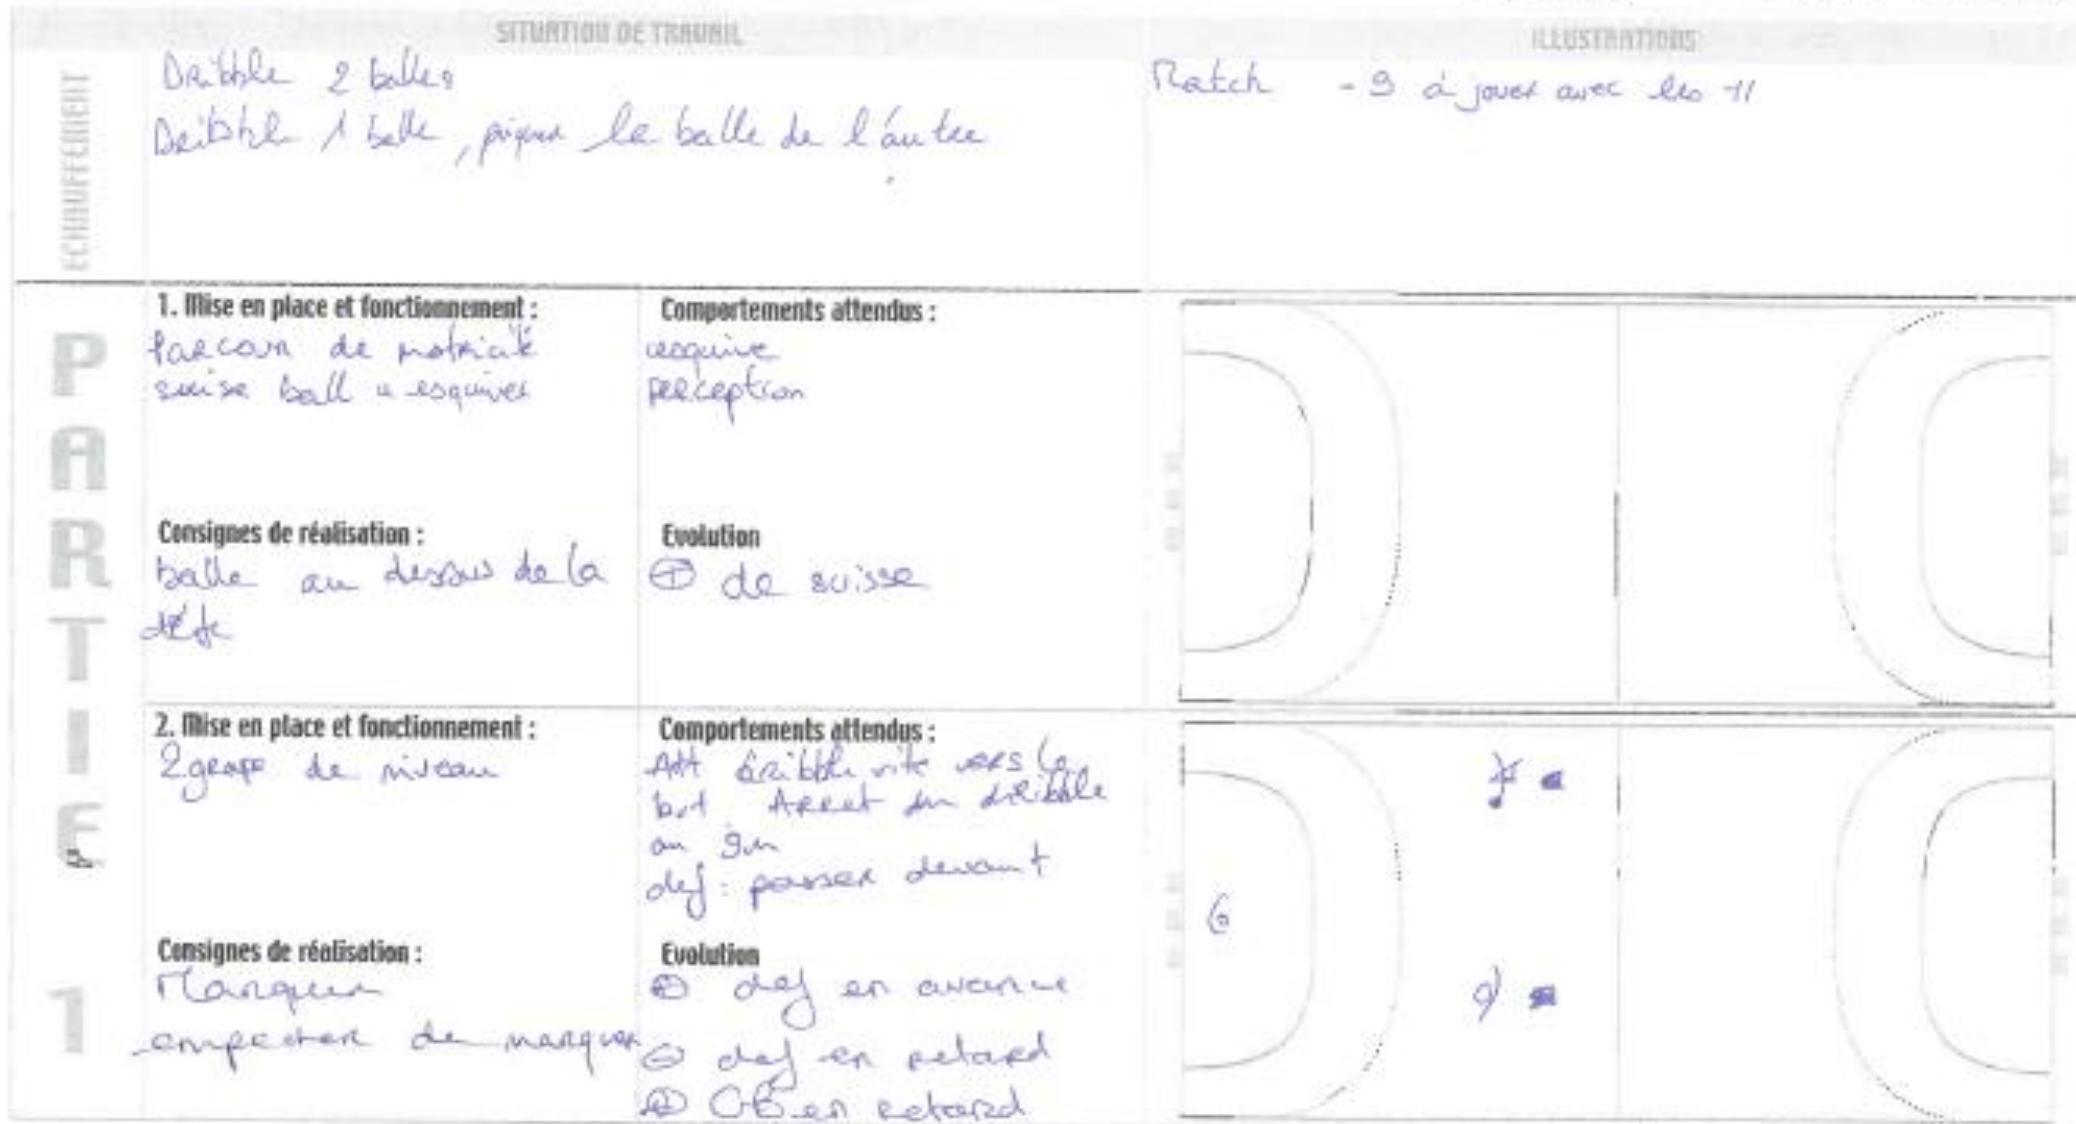 SITUATION DE TRAVAIL
ILLUSTRATIONS
ECHAUFFEMENT
Dribble 2 balles
Dribble 1 balle, piquer la balle de l'autre
Match - 9 à jouer avec les -11
PARTIE 1
1. Mise en place et fonctionnement :
Parcour de motricité
suise ball a esquiver
Comportements attendus :
esquive
perception
Consignes de réalisation :
balle au dessus de la
tête
Evolution
⊕ de suisse
2. Mise en place et fonctionnement :
2 grope de niveau
Comportements attendus :
Att dribble vite vers le
but Arret du dribble
au 9m
def : passer devant
Consignes de réalisation :
Marquer
empecher de marquer
Evolution
⊕ def en avance
⊖ def en retard
⊕ GB en retard
G